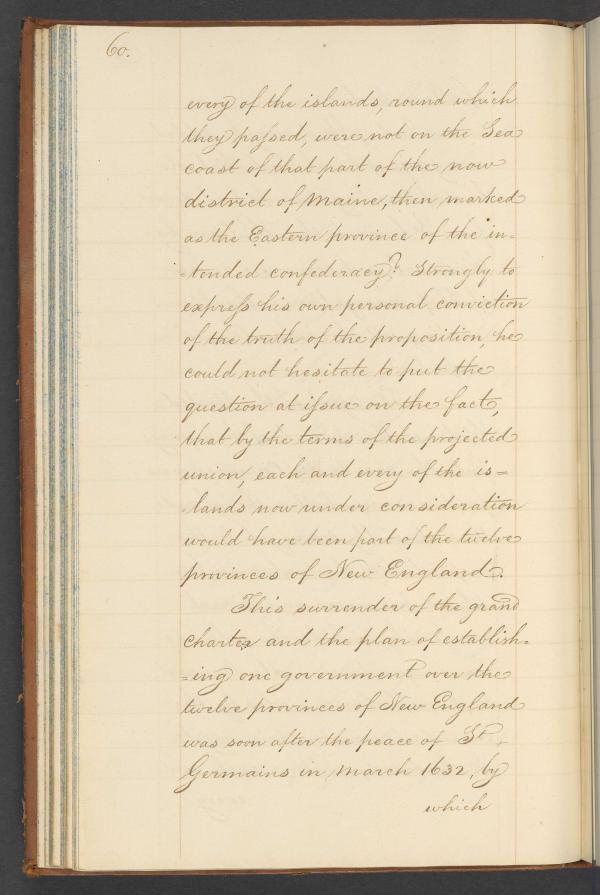 60.
every of the islands, round which
they passed, were not on the Sea
coast of that part of the now
district of Maine, then marked
as the Eastern province of the in-
-tended confederacy? Strongly to
express his own personal conviction
of the truth of the proposition, he
could not hesitate to put the
question at issue on the fact,
that by the terms of the projected
union, each and every of the is=
-lands now under consideration
would have been part of the twelve
provinces of New England.
This surrender of the grand
charter and the plan of establish-
=ing one government over the
twelve provinces of New England
was soon after the peace of St.
Germains in March 1632, by
which